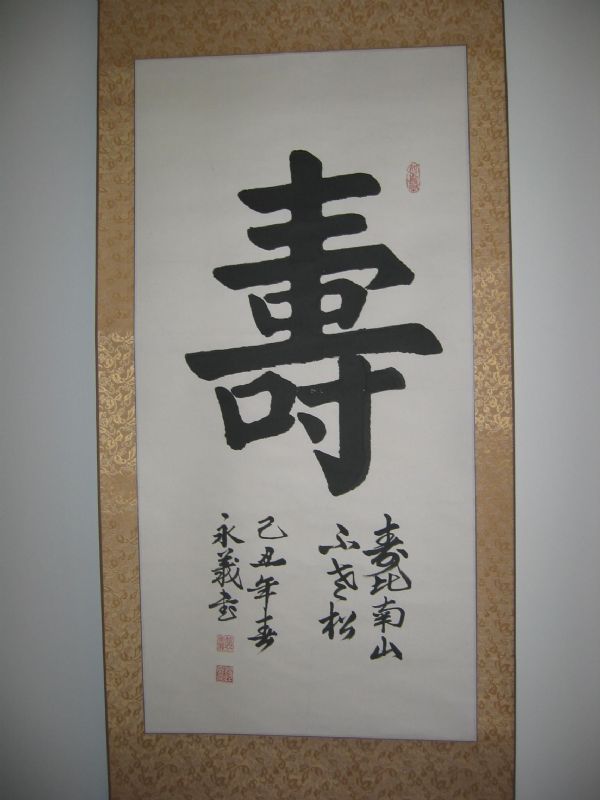 壽
寿比南山
不老松
己丑年春
永義书